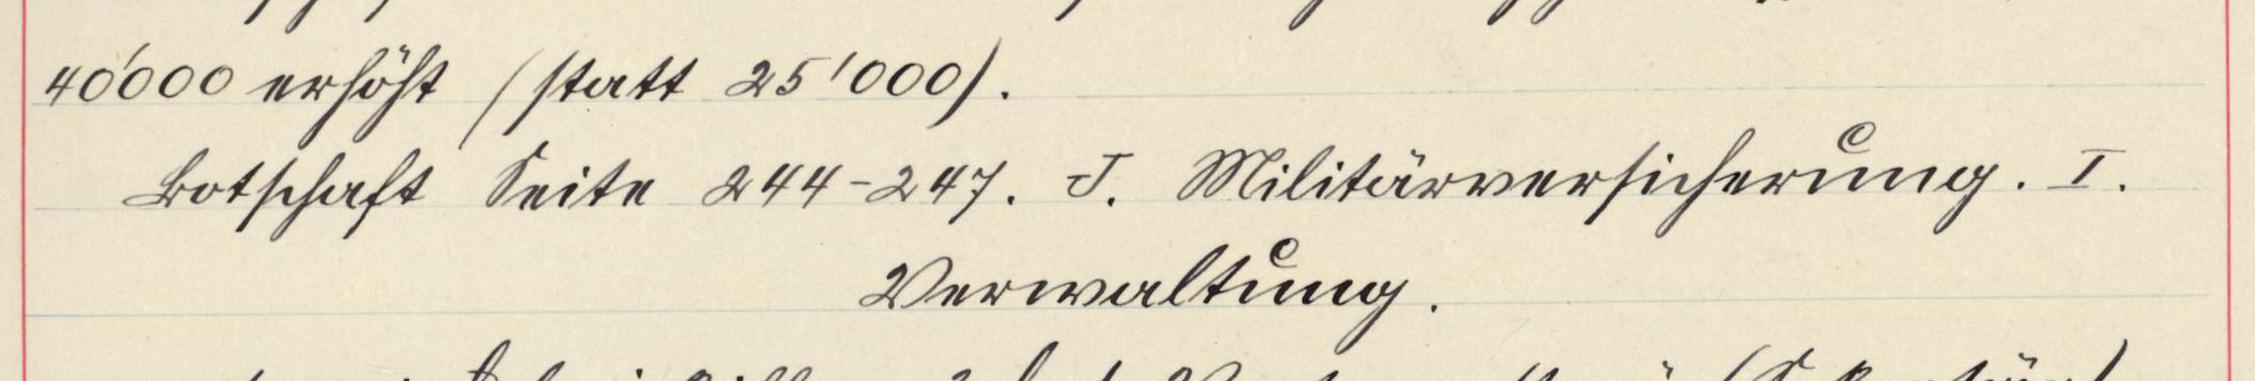 40'000 erhöht (statt 25'000).
Botschaft Seite 244-247. J. Militärversicherung. I.
Verwaltung.